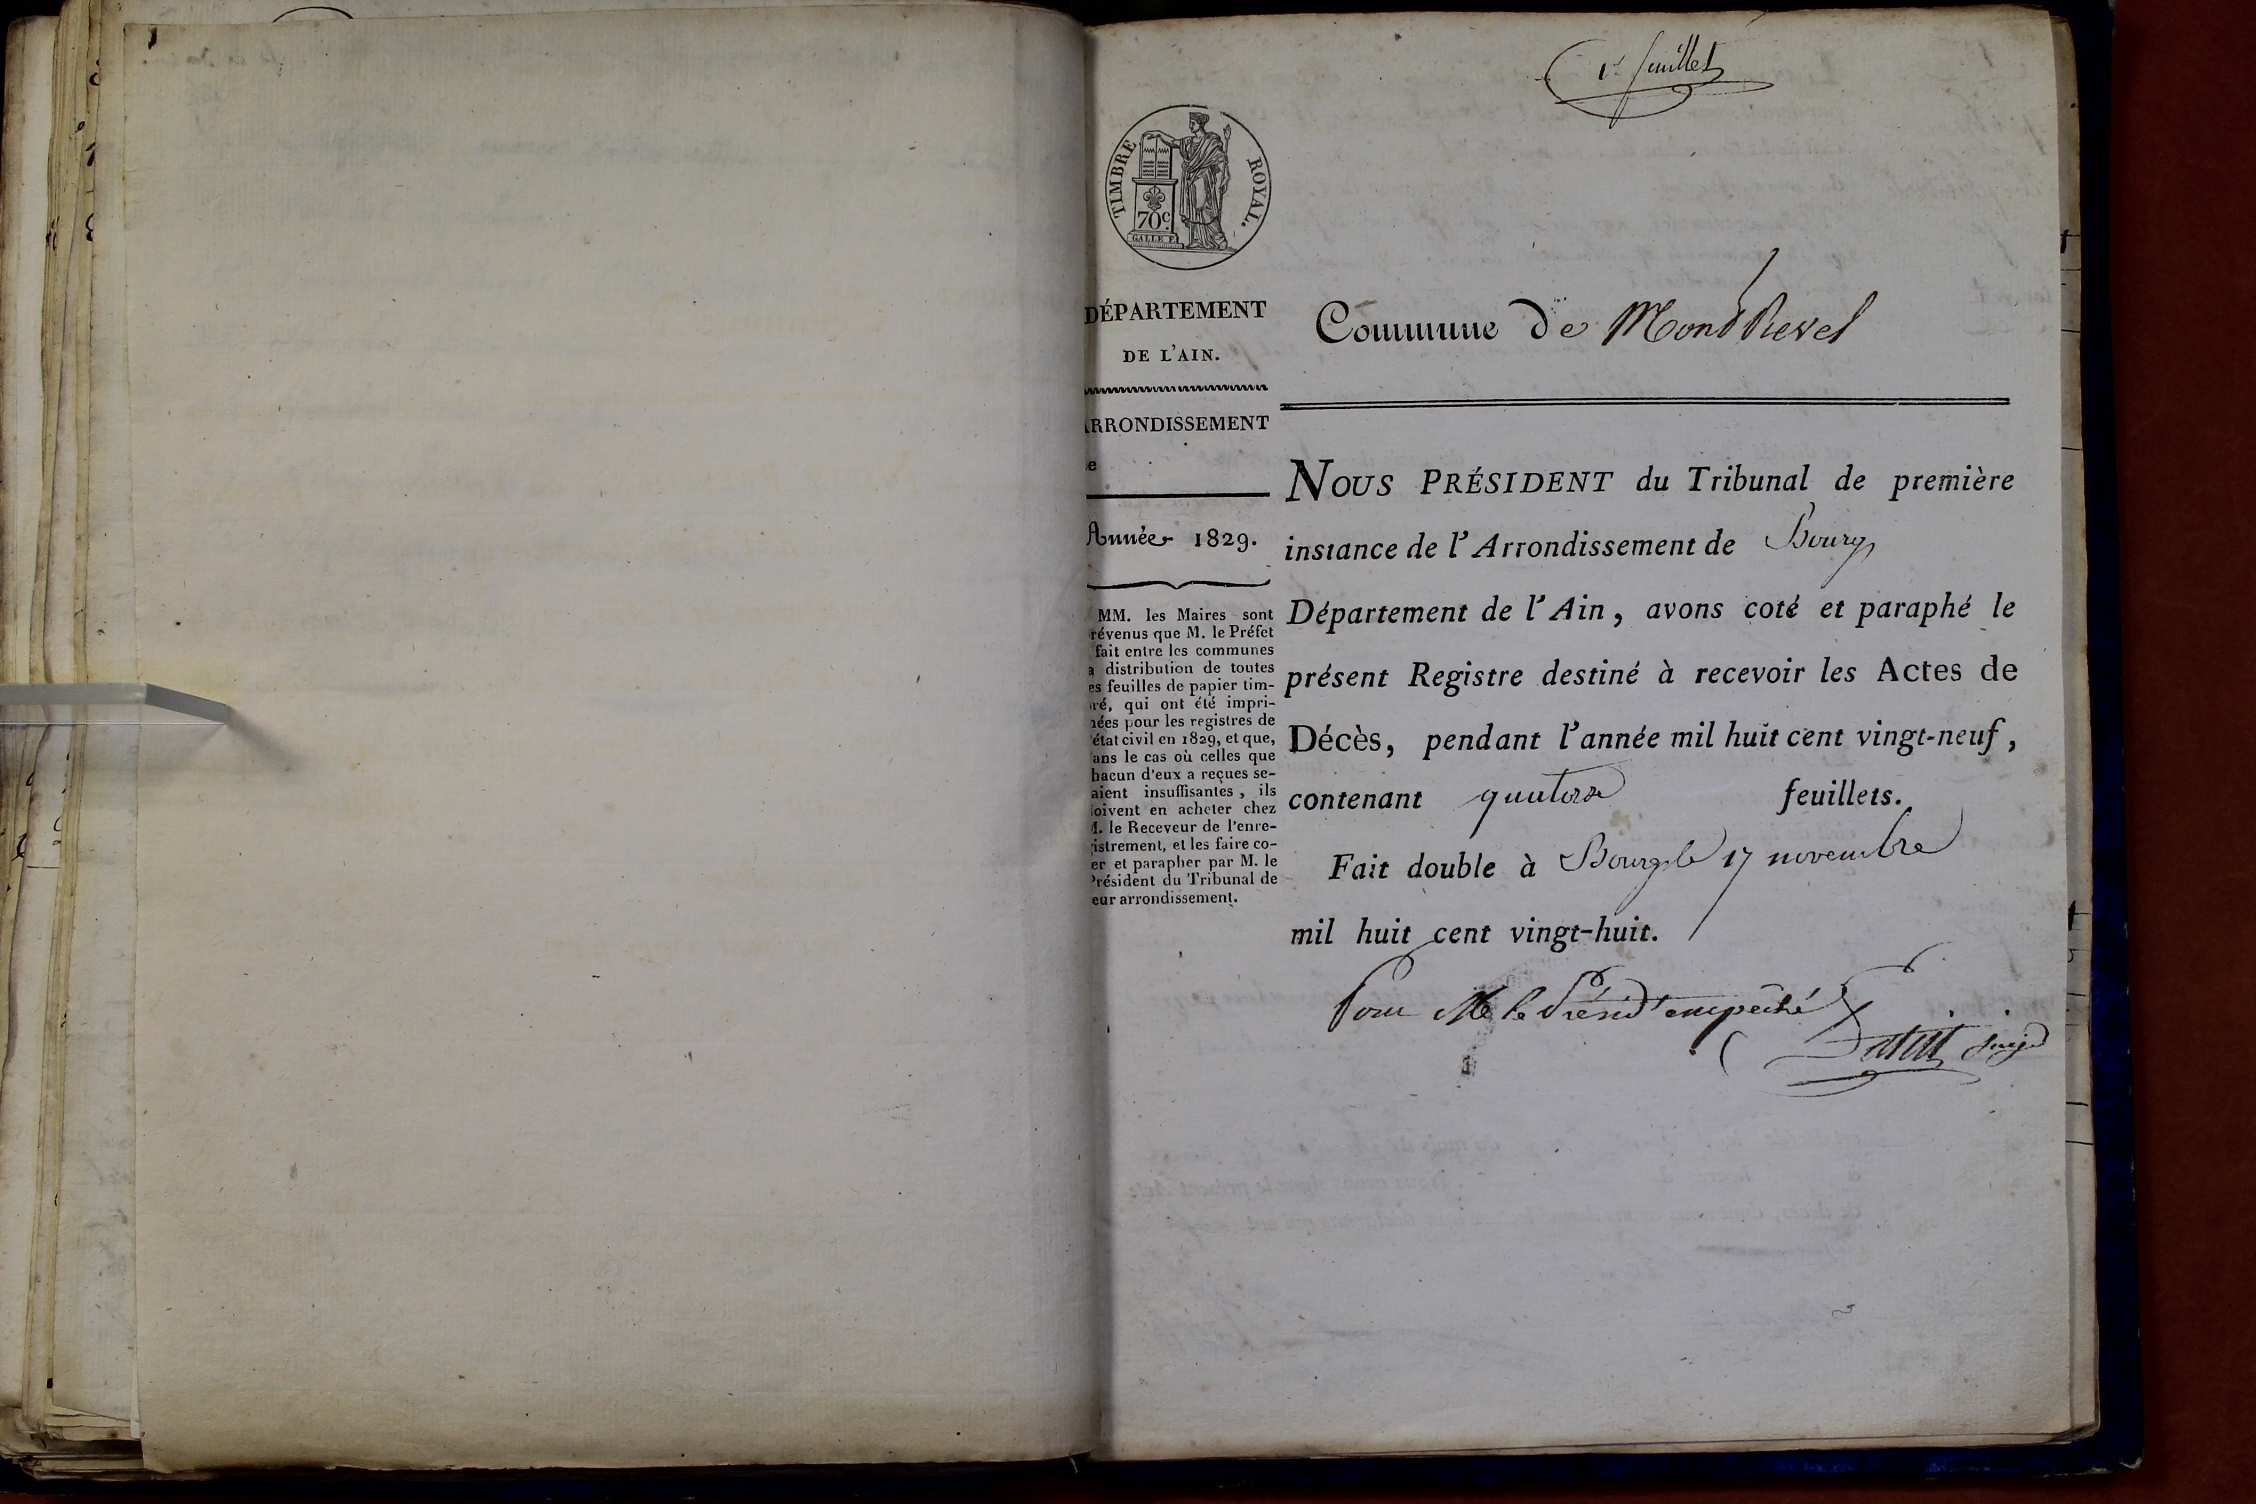 1er feuillet
TIMBRE ROYAL.
70c.
GALLE F.
DÉPARTEMENT
DE L'AIN.
ARRONDISSEMENT
e
Année 1829.
MM. les Maires sont
révenus que M. le Préfet
fait entre les communes
a distribution de toutes
es feuilles de papier tim-
ré, qui ont été impri-
mées pour les registres de
l'état civil en 1829, et que,
ans le cas où celles que
hacun d'eux a reçues se-
aient insuffisantes, ils
oivent en acheter chez
M. le Receveur de l'enre-
istrement, et les faire co-
er et parapher par M. le
Président du Tribunal de
eur arrondissement.
Commune de Montrevel
NOUS PRÉSIDENT du Tribunal de première
instance de l'Arrondissement de Bourg
Département de l'Ain, avons coté et paraphé le
présent Registre destiné à recevoir les Actes de
Décès, pendant l'année mil huit cent vingt-neuf,
contenant quatorze feuillets.
Fait double à Bourg le 17 novembre
mil huit cent vingt-huit.
Pour Mr le Présidt empêché
juge